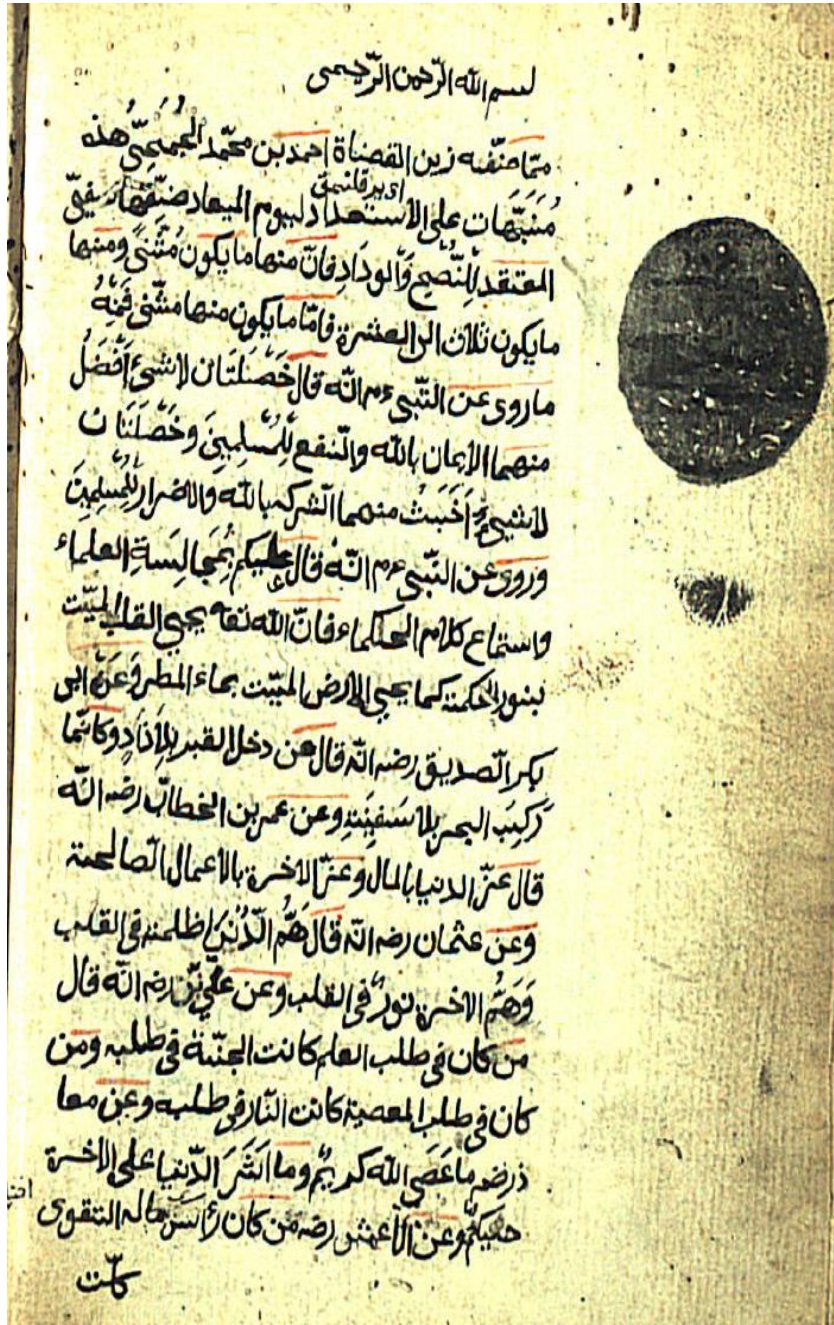 بسم الله الرّحمن الرّحيم
ممّا صنّفه زين القضاة احمد بن محمّد الحجّىّ هذه
مُنَبِّهَات على الاستعداد ليوم الميعاد
المعتقد لِلنُّصْحِ وَالوِدَادِ فانّ منها ما يكون مُثَنًّى ومنها
ما يكون ثلاث الى العشرة فامّا ما يكون منها مثنّى فَمِنْهُ
ما روى عن النّبىّ ءم انّه قال خَصْلَتَان لا شىءَ اَفْضَلُ
منهما الايمان بالله والنّفع لِلْمُسْلِمِينَ وخَصْلَتَان
لا شىءَ اَخْبَثُ منهما الشرك بالله والاضرار لِلْمُسْلِمِينَ
وروى عن النّبىّ ءم انّه قال عليكم بِمُجَالَسَةِ العلماء
واستماع كلام الحكماء فانّ الله تعه يحيى القلب الميّت
بنور الحكمة كما يحيى الارض الميّت بماء المطر وَعَنْ ابى
بكر الصّديق رضه انّه قال من دخل القبر بلا زَادٍ وكانّما
رَكِبَ البحر بلا سَفِينَةٍ وعن عمر بن الخطاب رضه انّه
قال عَزّ الدنيا بالمال وعزّ الاخرة بالاعمال الصّالحة
وعن عثمان رضه انّه قال هَمُّ الدُّنْيَا ظلمة فى القلب
وَهَمُّ الاخرة نورٌ فى القلب وعن علىّ رضه انّه قال
من كان فى طلب العلم كانت الجنّة فى طلبه ومن
كان فى طلب المعصية كانت النّار فى طلبه وعن معا
ذ رضه ما عَصَى الله كريمٌ وما اَثَرَ الدّنيا على الاخرة
حكيمٌ وعن الاعمش رضه من كان رأس ماله التقوى
كلّت